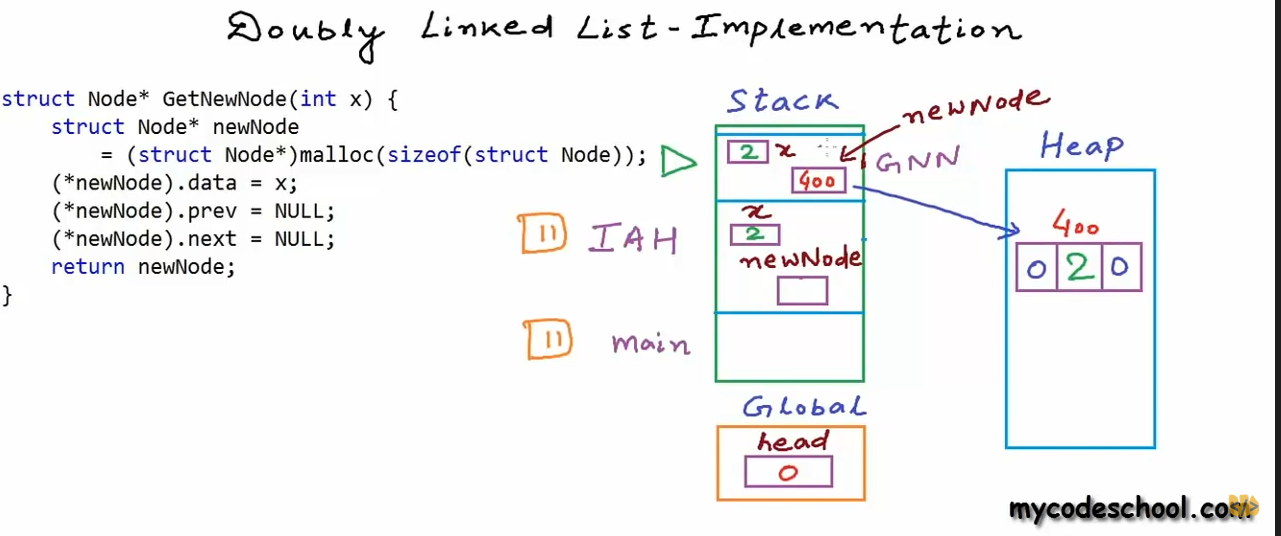 Doubly Linked List - Implementation
struct Node* GetNewNode(int x) {
struct Node* newNode
= (struct Node*)malloc(sizeof(struct Node));
(*newNode).data = x;
(*newNode).prev = NULL;
(*newNode).next = NULL;
return newNode;
}
Stack
newNode
2 x
GNN
400
x
2
IAH
newNode
main
Global
head
0
Heap
400
0 2 0
mycodeschool.com